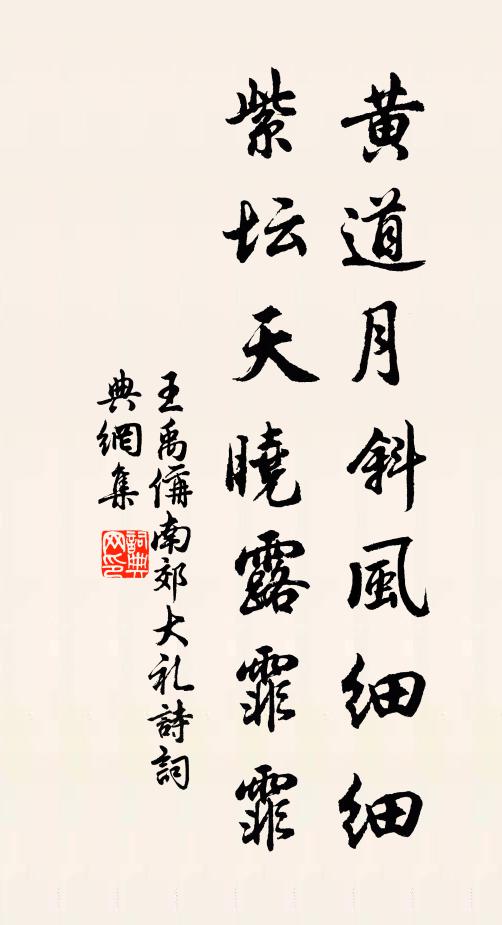 黄道月斜風细细
紫坛天曉露霏霏
王禹偁南郊大礼詩詞
典網集
詞典
网印